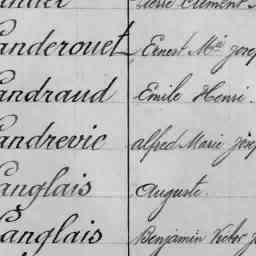 anderouet Ernest Mie Josep
andraud Émile Henri.
andrevic alfred Marie Josep
anglais auguste.
anglais Benjamin Victor J